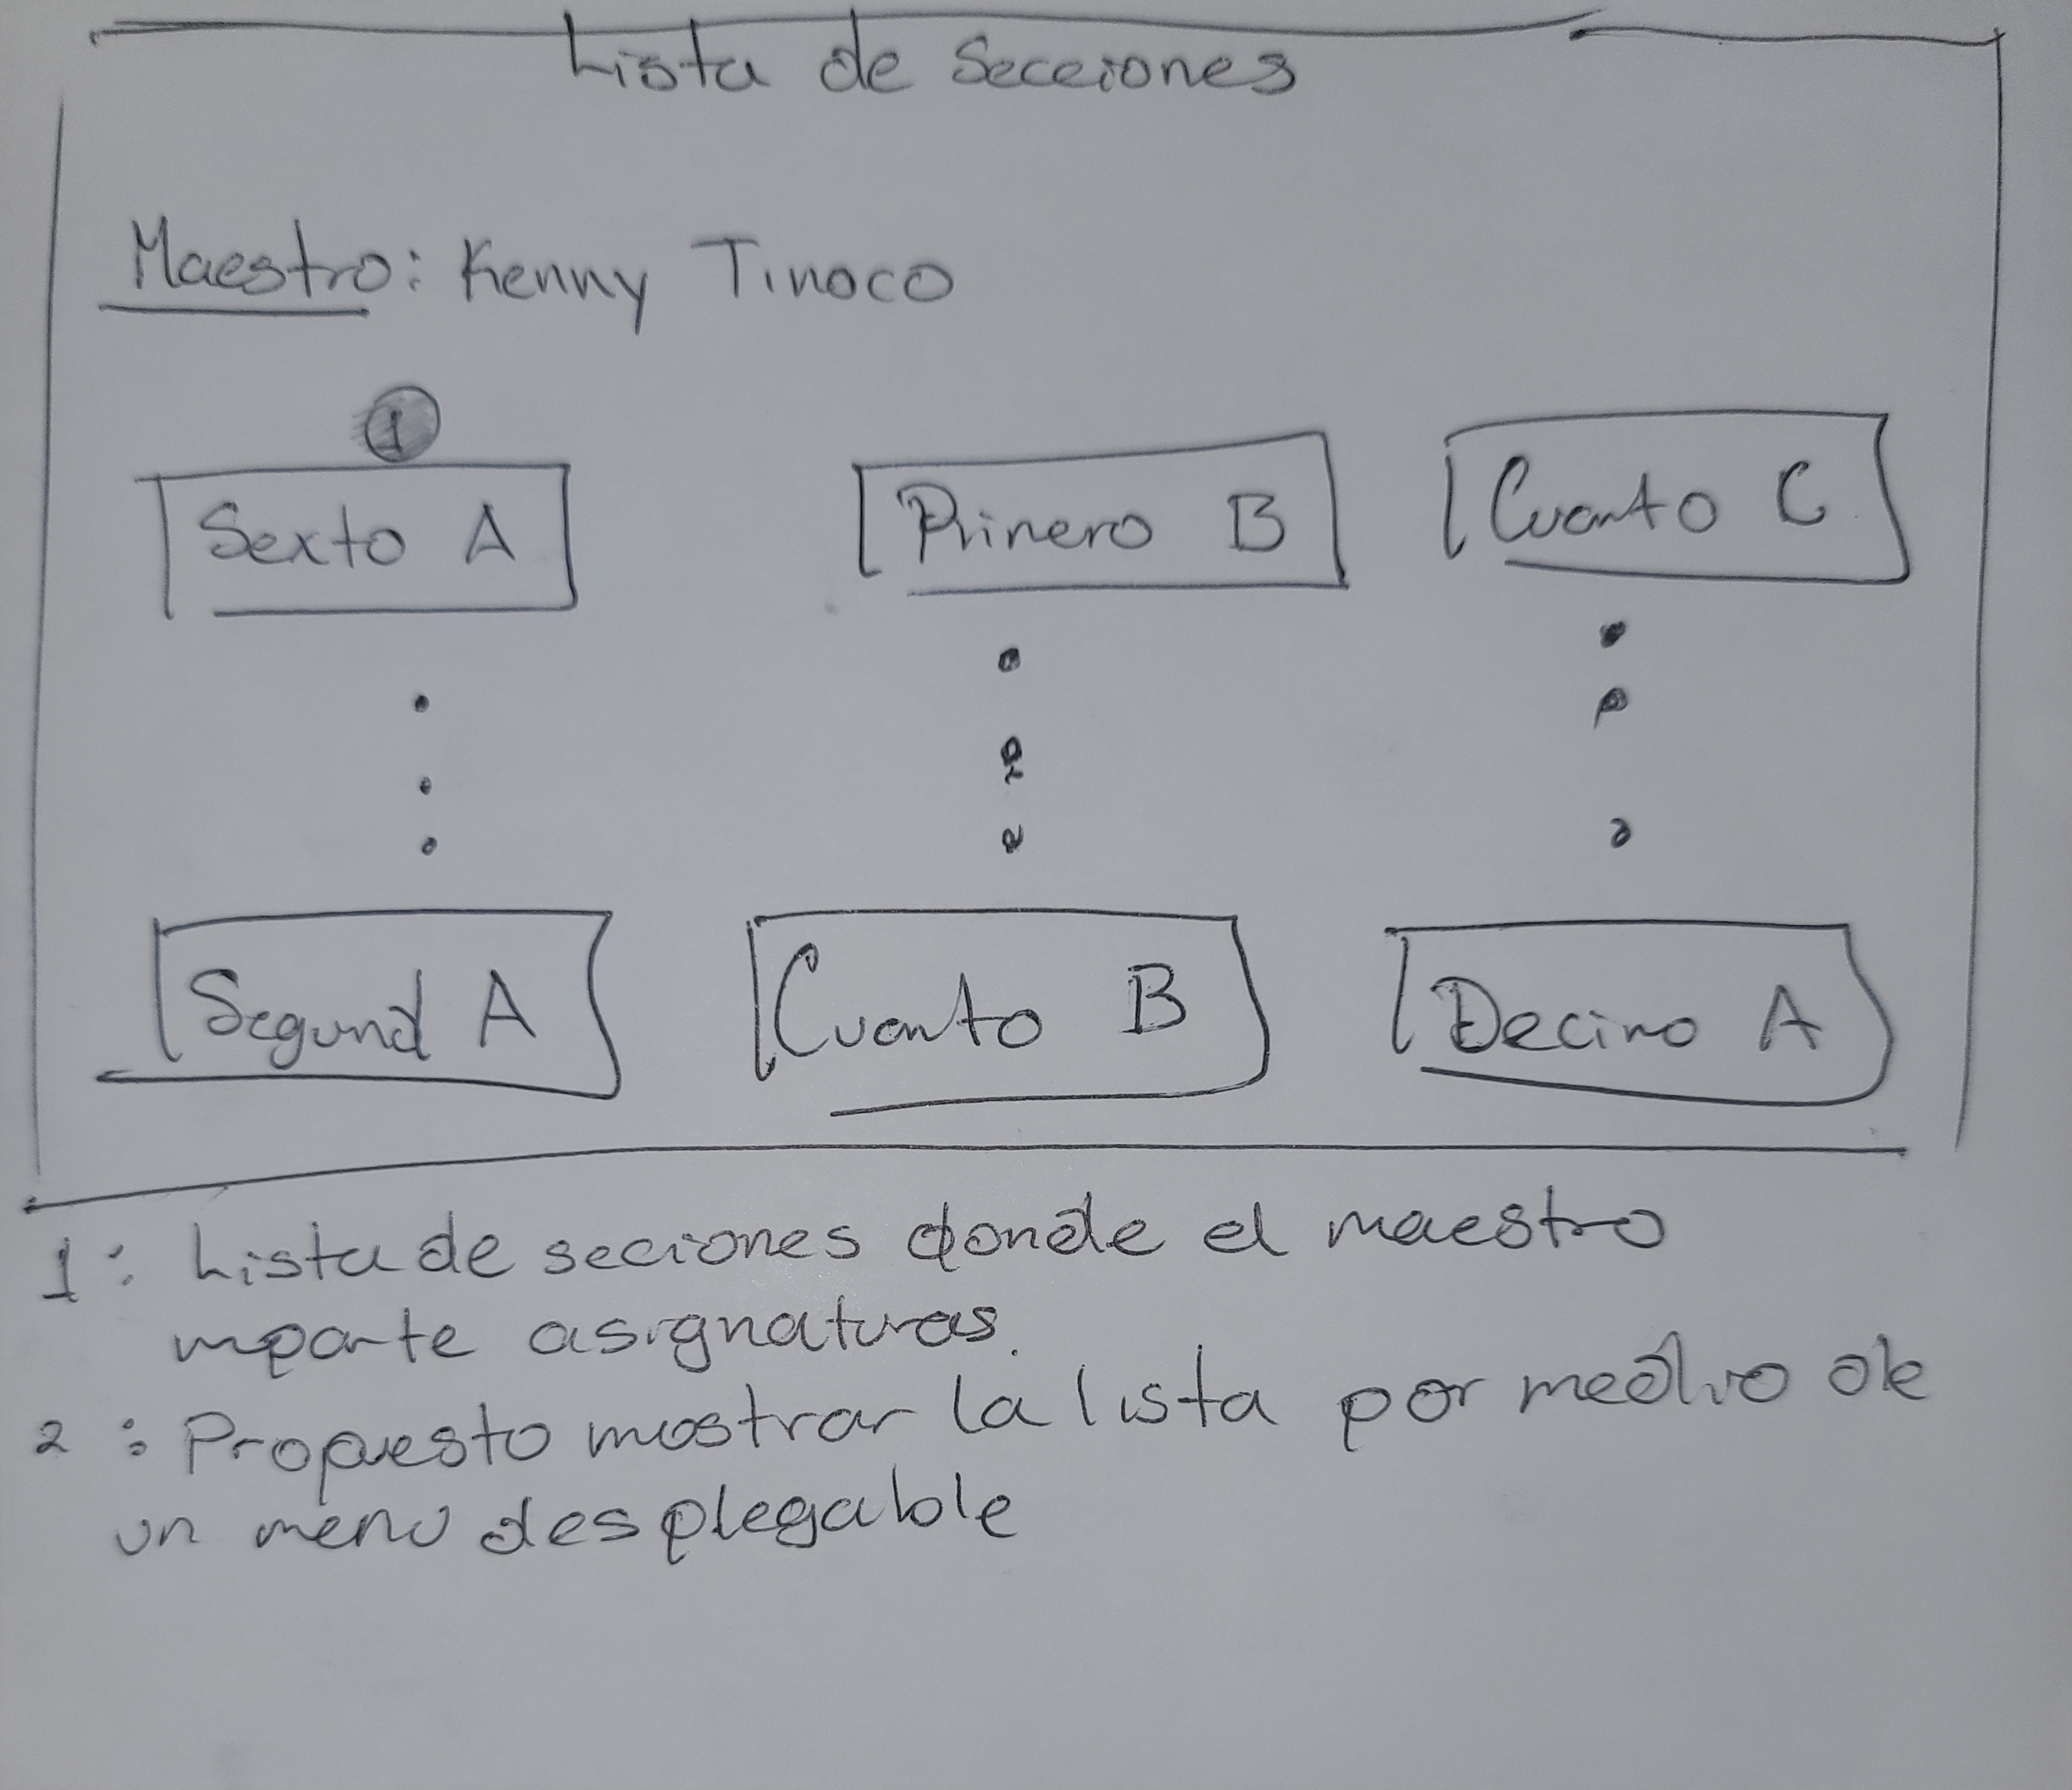 Lista de Secciones
Maestro: Kenny Tinoco
1
Sexto A
Primero B
Cuarto C
Segund A
Cuarto B
Decimo A
1: Lista de seciones donde el maestro
imparte asignaturas.
2: Propuesto mostrar la lista por medio de
un menu desplegable